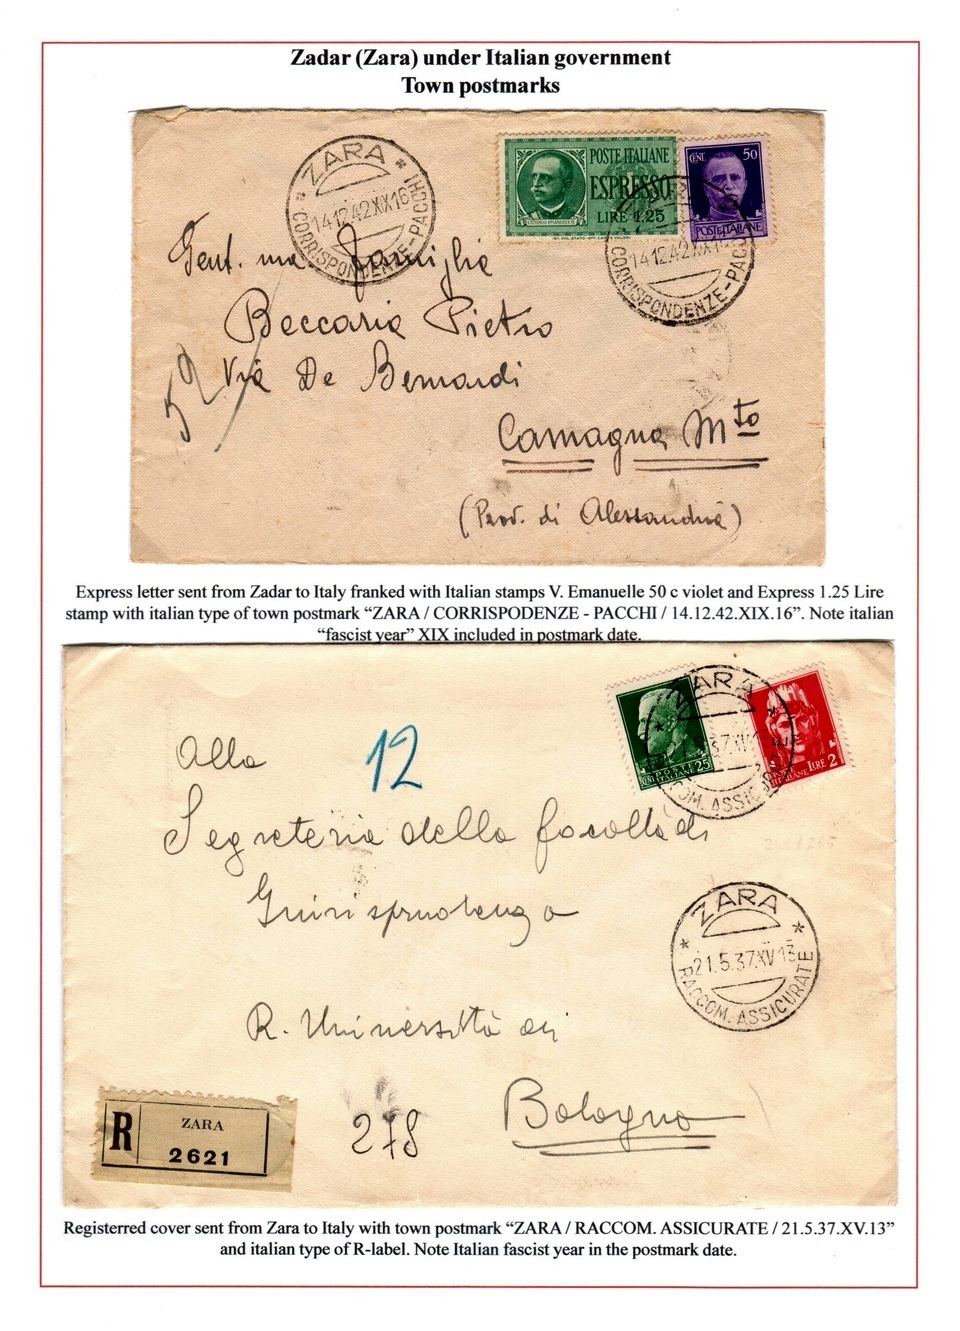 Zadar (Zara) under Italian government
Town postmarks
ZARA
14.12.42.XX16
CORRISPONDENZE-PACCHI
POSTE ITALIANE
ESPRESSO
LIRE 1.25
CENT. 50
POSTE ITALIANE
14.12.42.XX16
CORRISPONDENZE-PACC
Gent. ma Famiglia
Beccaria Pietro
Via De Bernardi
Camagna Mto
(Prov. di Alessandria)
Express letter sent from Zadar to Italy franked with Italian stamps V. Emanuelle 50 c violet and Express 1.25 Lire
stamp with italian type of town postmark “ZARA / CORRISPODENZE - PACCHI / 14.12.42.XIX.16”. Note italian
“fascist year” XIX included in postmark date.
POSTE
ITALIANE 25
POSTE
ITALIANE LIRE 2
ZARA
37.XV
COM. ASSIC
12
Alla
Segreteria della facoltà di
Giurisprudenza
ZARA
21.5.37.XV 13
RACCOM. ASSICURATE
R. Università di
Bologna
278
R
ZARA
2621
Registerred cover sent from Zara to Italy with town postmark “ZARA / RACCOM. ASSICURATE / 21.5.37.XV.13”
and italian type of R-label. Note Italian fascist year in the postmark date.